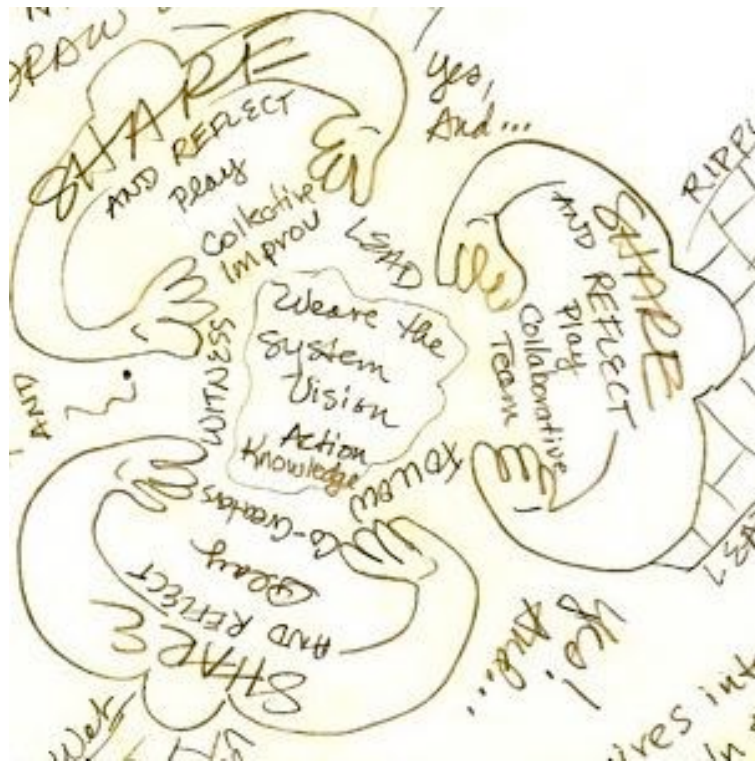 DRAW
SHARE
AND REFLECT
Play
Collective
Improv
Yes,
And...
LEAD
SHARE
AND REFLECT
Play
Collaborative
Team
Weave the
System
Vision
Action
Knowledge
WITNESS
AND
FOLLOW
Co-Creators
Play
AND REFLECT
SHARE
Yes!
And...
Wet